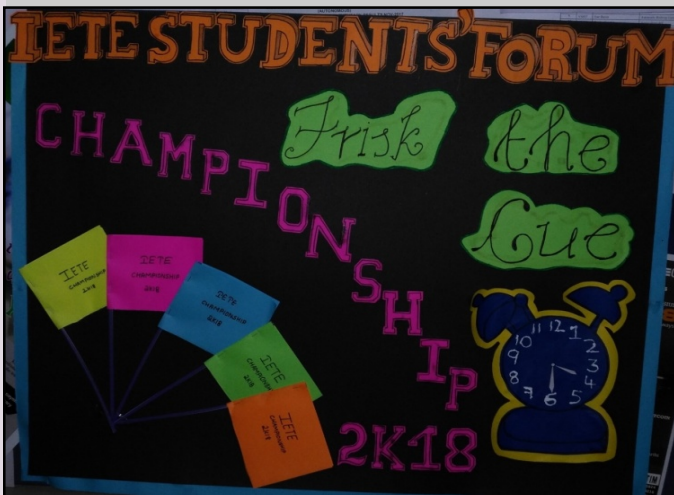 IETE STUDENTS' FORUM
Frisk the
Cue
CHAMPIONSHIP
2K18
IETE
CHAMPIONSHIP
2K18
IETE
CHAMPIONSHIP
2K18
IETE
CHAMPIONSHIP
2K18
IETE
CHAMPIONSHIP
2K18
IETE
CHAMPIONSHIP
2K18
12
1
2
3
4
5
6
7
8
9
10
11